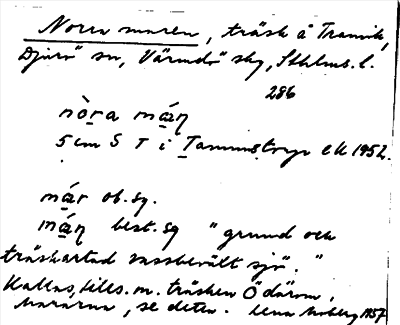 Norra maren, träsk å Tranvik,
Djurö sn, Värmdö skg, Sthlms. l.
286
nò̱ra má̱ꞃ
5 cm S T i Tammstryp ek 1952.
má̱r ob. sg.
má̱ꞃ best. sg "grund och
träskartad vassbevält sjö."
Kallas, tills. m. träsken Ö därom,
Mararna, se detta. Lena Moberg 1957